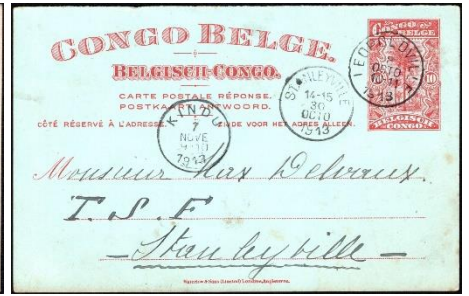 CONGO BELGE.
BELGISCH-CONGO.
CARTE POSTALE RÉPONSE.
POSTKAART ANTWOORD.
CÔTÉ RÉSERVÉ À L'ADRESSE. ZIJDE VOOR HET ADRES ALLEEN.
CONGO BELGE
10
BELGISCH CONGO
LEOPOLDVILLE
OCTO
1913
STANLEYVILLE
14-15
30
OCTO
1913
KINDU
7
NOVE
1913
Monsieur Max Delvaux
T. S. F
Stanleyville